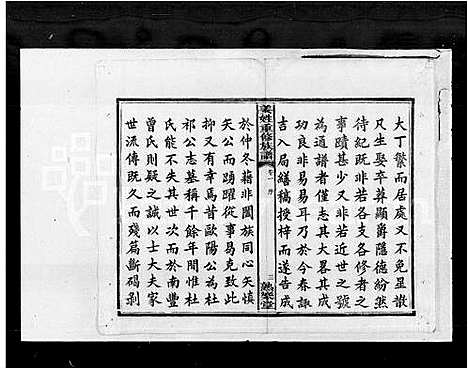 大丁繁而居處又不免星散
凡生娶卒葬顯爵隱德紛然
待紀既非若各支各修者之
事蹟甚少又非若近世之號
為通譜者僅志其大畧其成
功良非易易耳乃於今春諏
吉入局繕稿授梓而遂告成
姜姓重修族譜
卷一 序
三
於仲冬藉非闔族同心矢慎
矢公而踴躍從事易克致此
抑又有幸焉昔歐陽公為杜
祁公志墓稱千餘年間惟杜
氏能不失其世次而於南豐
曾氏則疑之誠以士大夫家
世流傳既久而殘篇斷碣剥